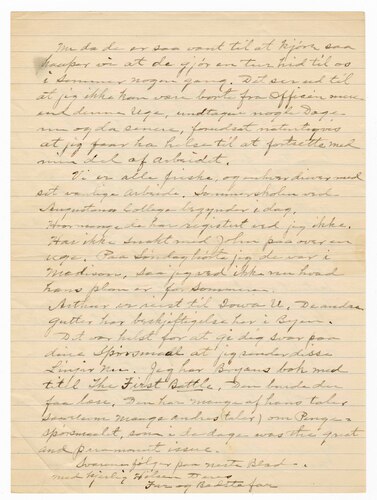 Nu da de er saa vant til at kjøre saa
haaper vi at de gjør en tur hid til os
i Sommer nogen gang. Det ser ud til
at jeg ikke kan være borte fra Officen mere
end denne Uge, undtagen nogle Dage
nu og da senere, forudsat naturligvis
at jeg faar ha helse til at fortsette med
min del af Arbeidet.
Vi er alle friske, og enhver driver med
sit vanlige Arbeide. Sommerskolen ved
Augustana College begynder i dag.
Hormange de har registret ved jeg ikke.
Har ikke snakt med John paa over en
uge. Paa Søndag holte jeg de var i
Madison, saa jeg ved ikke nu hvad
hans plan er for Sommeren.
Arthur er reist til Iowa U. De andre
gutter har beskjeftigelse her i Byen.
Det var helst for at gi dig svar paa
dine Spørsmaal at jeg sender disse
Linjer Nu. Jeg har Bryans bok med
titel The First Battle. Den burde du
faa læse. Den har mange af hans taler
saavelsom mange andres taler om Penge-
Spørsmaalet, som i de dage was the great
and paramount issue.
Svarene følger paa neste Blad.
med kjerlig Hilsen
Far og Bedstefar